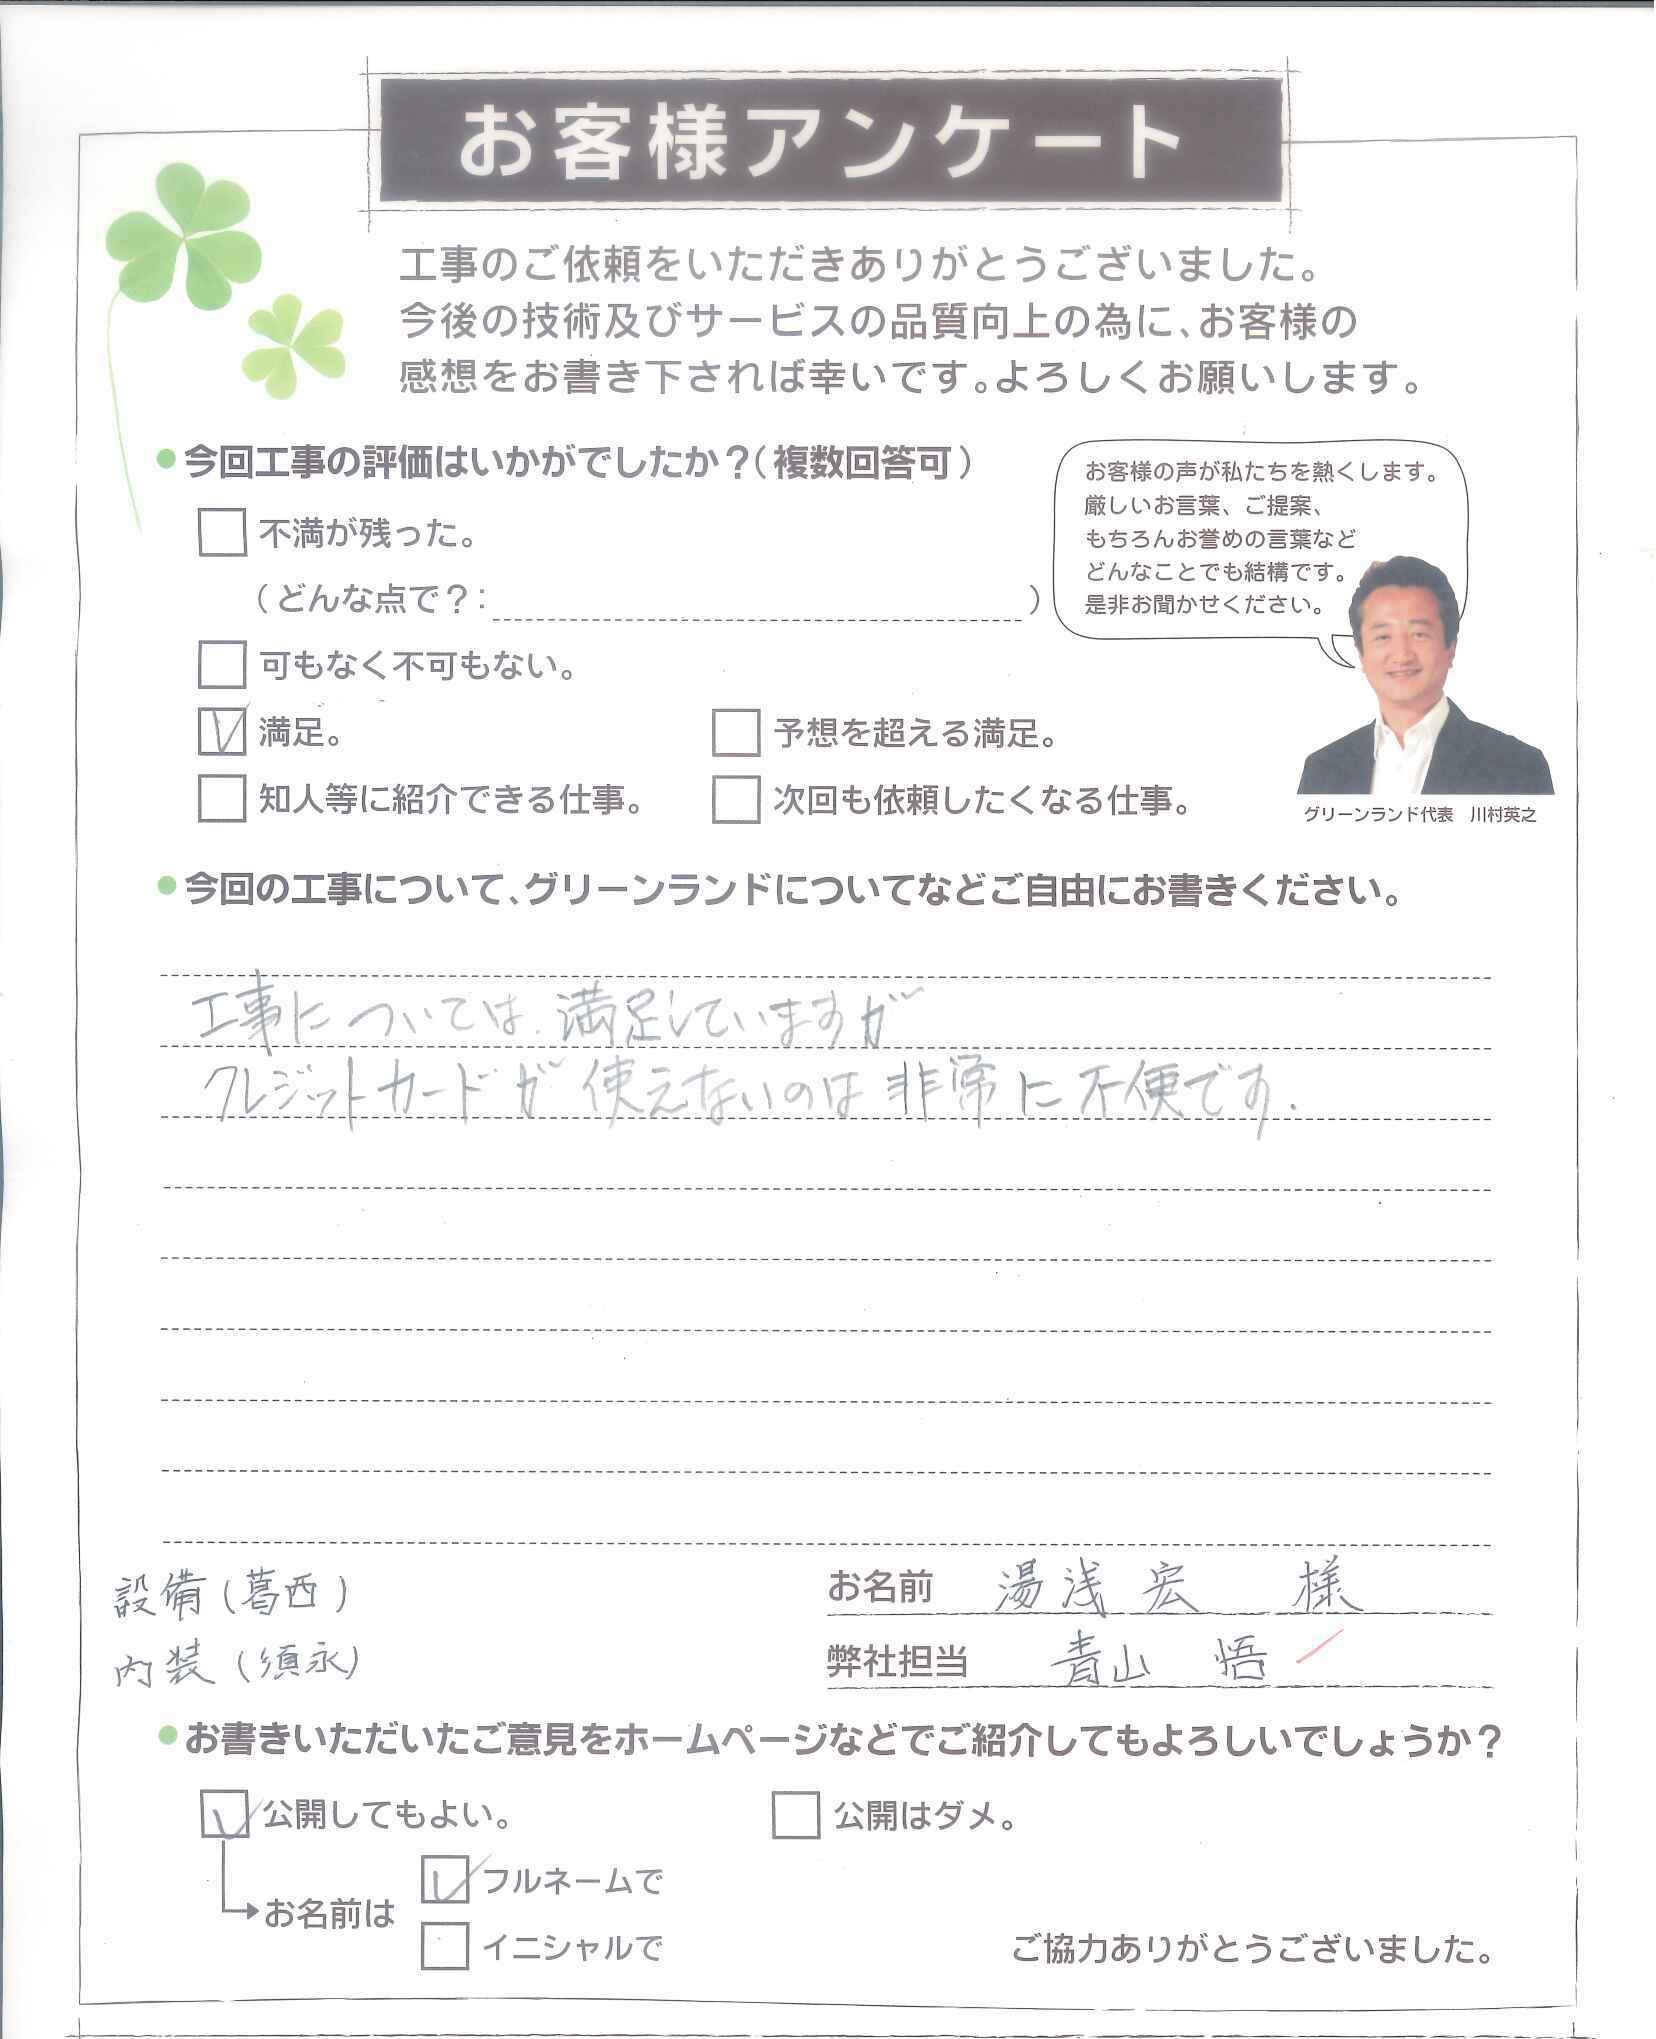 お客様アンケート
工事のご依頼をいただきありがとうございました。
今後の技術及びサービスの品質向上の為に、お客様の
感想をお書き下されば幸いです。よろしくお願いします。
●今回工事の評価はいかがでしたか？（複数回答可）
不満が残った。
（どんな点で？：　）
可もなく不可もない。
満足。
予想を超える満足。
知人等に紹介できる仕事。
次回も依頼したくなる仕事。
お客様の声が私たちを熱くします。
厳しいお言葉、ご提案、
もちろんお誉めの言葉など
どんなことでも結構です。
是非お聞かせください。
グリーンランド代表　川村英之
●今回の工事について、グリーンランドについてなどご自由にお書きください。
工事については、満足していますが
クレジットカードが使えないのは非常に不便です.
設備(葛西)
内装(須永)
お名前　湯浅 宏　様
弊社担当　青山　悟
●お書きいただいたご意見をホームページなどでご紹介してもよろしいでしょうか？
公開してもよい。
公開はダメ。
お名前は
フルネームで
イニシャルで
ご協力ありがとうございました。